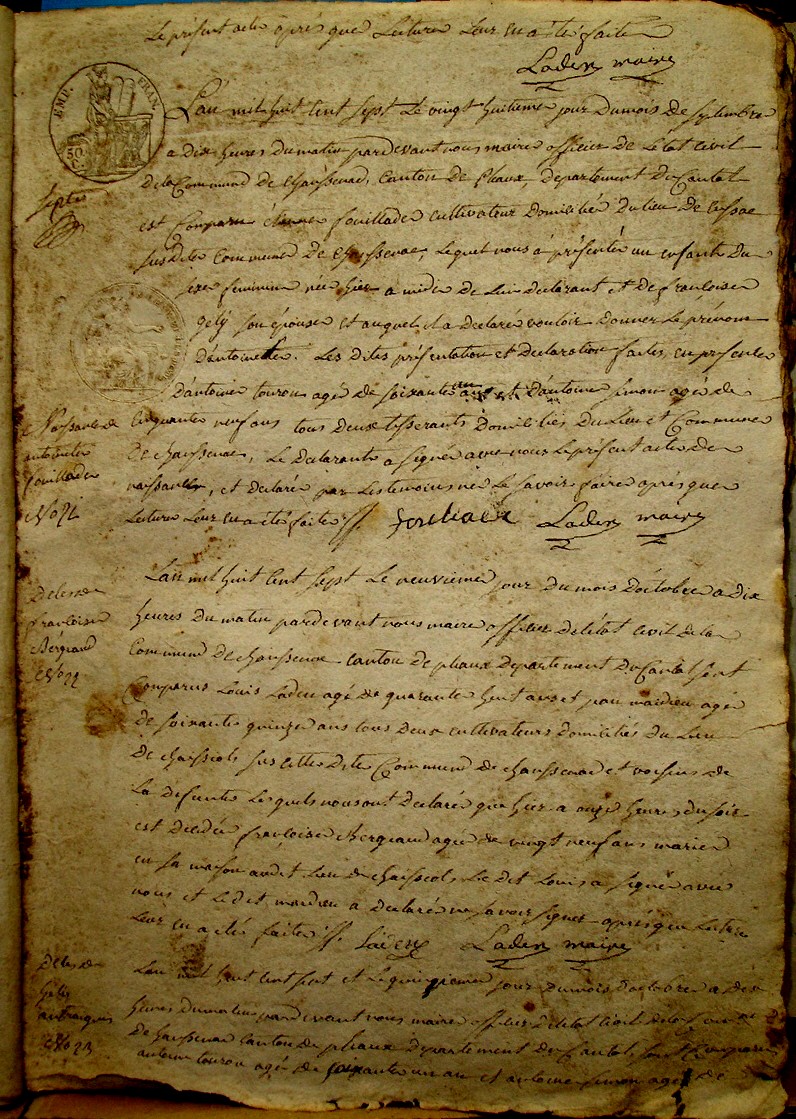 Le présent acte après que Lecture Leur en a été faite
Laden maire
EMP. FRAN.
50 C.
L'an mil huit Cent Sept Le vingt huitieme jour du mois de septembre
a dix heures du matin pardevant nous maire officier de L'état civil
dela Commune de chaussenac, Canton de pleaux, département du Cantal
est Comparu étienne fouillade cultivateur domicilié du lieu de
susdite Commune de chaussenac, Lequel nous à présenté un enfant du
sexe feminin née hier a midi de Lui declarant et de françoise
gely son épouse et auquel il a declaré vouloir donner Le prénom
d'antoinette. Les dites présentation et declaration faites en presence
d'antoine touron agé de soixante un ans et d'antoine simon agé de
Cinquante neuf ans tous deux tisserants domiciliés du Lieu et Commune
de chaussenac, Le declarant a signé avec nous Le present acte de
naissance, et declaré par Les temoins ne Le savoir faire après que
Lecture Leur en a été faite
fouilhade Laden maire
Naissance de
antoinette
fouillade
No 21
L'an mil huit Cent Sept Le neuvieme jour du mois d'octobre a dix
heures du matin pardevant nous maire officier de létat civil de la
Commune de chaussenac canton de pleaux departement du Cantal sont
Comparus Louis Laden agé de quarante huit ans et jean mardieu agé
de soixante quinze ans tous deux cultivateurs domiciliés du Lieu
de susditte Commune de chaussenac et voisins de
La defunte Lesquels nous ont declaré que hier a onze heures du soir
est decedée françoise Bergeaud agée de vingt neuf ans mariée
en sa maison audit Lieu de Le dit Louis a signé avec
nous et Le dit mardieu a declaré ne savoir signer après que Lecture
Leur en a été faite Laden Laden maire
Deces de
françoise
Bergeaud
No 22
L'an mil huit Cent Sept et Le quinzieme jour du mois d'octobre a dix
heures du matin pardevant nous maire officier de létat civil de la Commune
de chaussenac Canton de pleaux departement du Cantal, sont Comparus
antoine touron agé de soixante un an et antoine simon agé de
Deces de
No 23